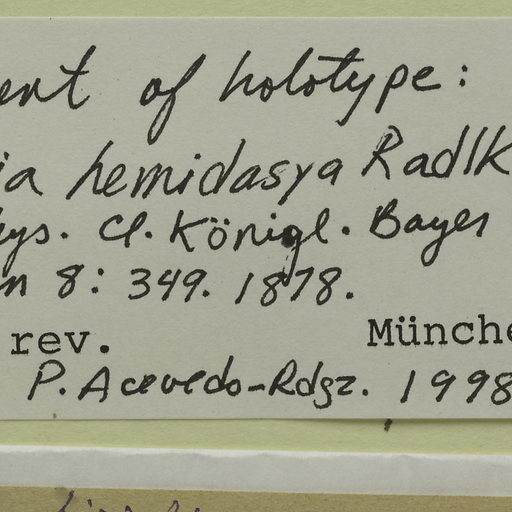 ent of holotype:
ia hemidasya Radlk
ys. Cl. Königl. Bayer
n 8: 349. 1878.
rev. Münche
P. Acevedo-Rdgz. 1998